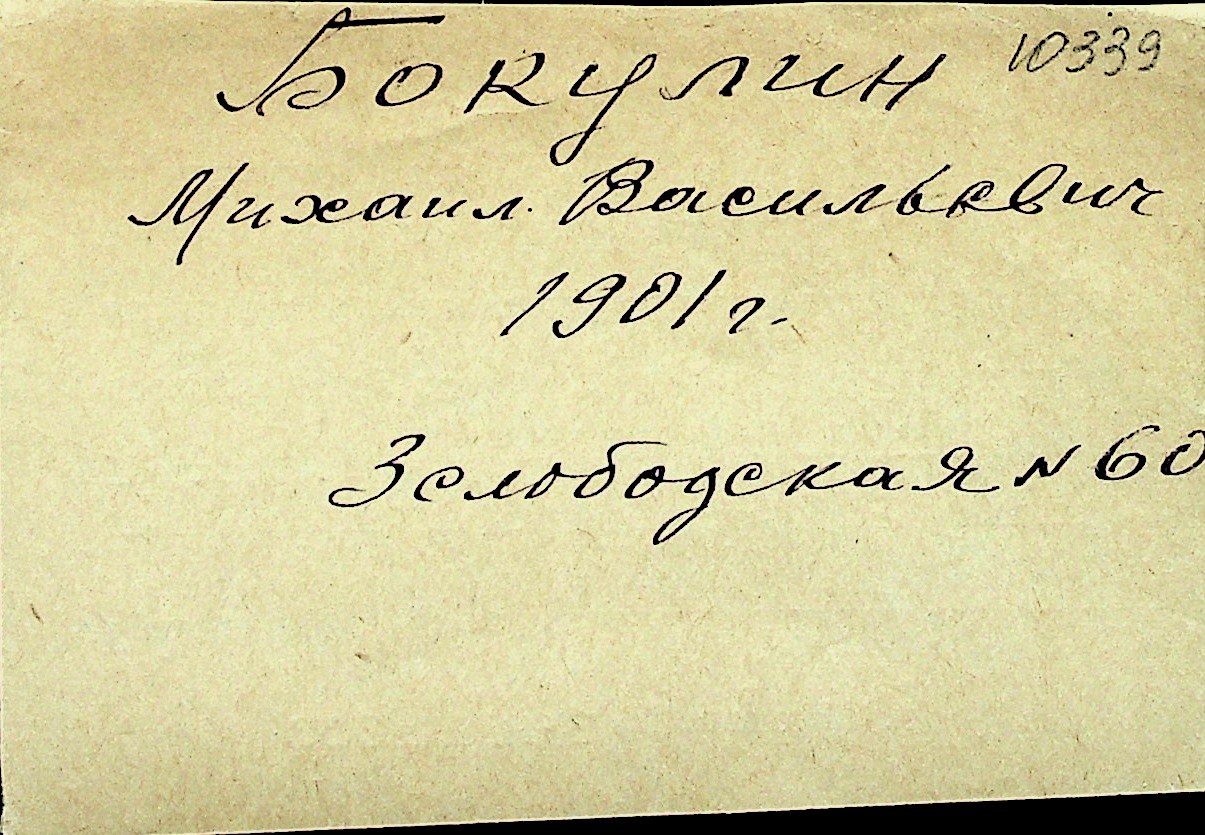 Бокулин 10339
Михаил Васильевич
1901 г.
3 слободская N 60